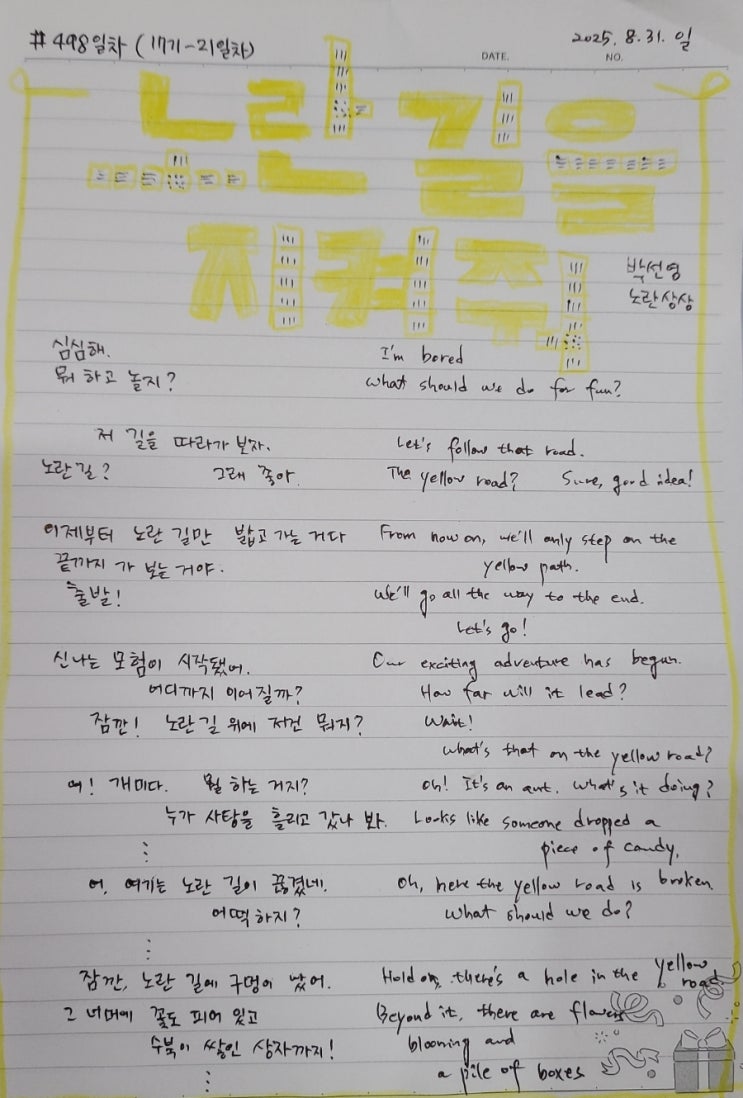 #498일차 (17기-21일차)
2025. 8. 31. 일
DATE. NO.
노란 길을
지켜 줘
박선영
노란상상
심심해. I'm bored
뭐 하고 놀지? What should we do for fun?
저 길을 따라가 보자. Let's follow that road.
노란길? 그래 좋아. The yellow road? Sure, good idea!
이제부터 노란 길만 밟고 가는 거다 From now on, we'll only step on the
끝까지 가 보는 거야. yellow path.
출발! We'll go all the way to the end.
Let's go!
신나는 모험이 시작됐어. Our exciting adventure has begun.
어디까지 이어질까? How far will it lead?
잠깐! 노란길 위에 저건 뭐지? Wait!
What's that on the yellow road?
어! 개미다. 뭘 하는 거지? Oh! It's an ant. What's it doing?
누가 사탕을 흘리고 갔나 봐. Looks like someone dropped a
⋮ piece of candy.
어, 여기는 노란 길이 끊겼네. Oh, here the yellow road is broken.
어떡하지? What should we do?
⋮
잠깐, 노란 길에 구멍이 났어. Hold on, there's a hole in the yellow road
그 너머에 꽃도 피어 있고 Beyond it, there are flowers
수북이 쌓인 상자까지! blooming and
⋮ a pile of boxes